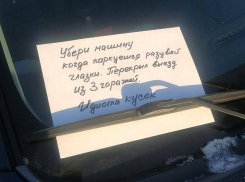 Убери машину
когда паркуешся разувай
глазки. Перекрыл выезд
из 3 гаражей.
Идиота кусок